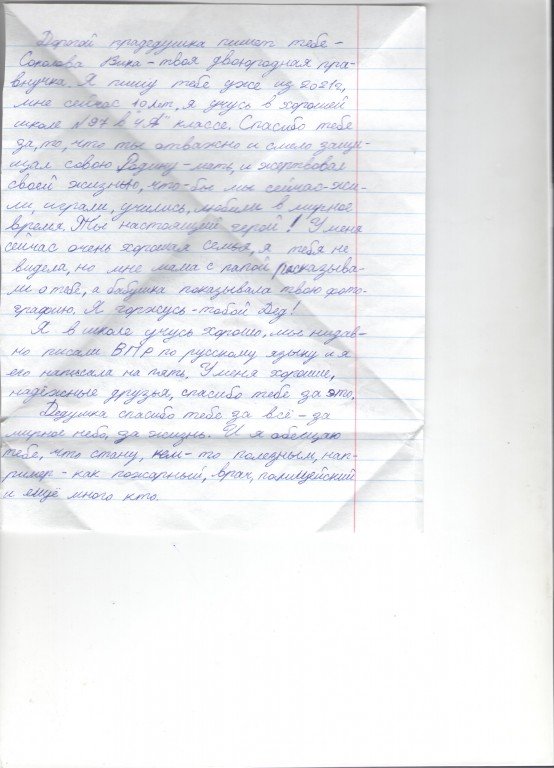 Дорогой прадедушка пишет тебе -
Соколова Вика - твоя двоюродная пра-
внучка. Я пишу тебе уже из 2021г,
мне сейчас 10 лет, я учусь в хорошей
школе №97 в "4А" классе. Спасибо тебе
за, то, что ты отважно и смело защи-
щал совою Родину - мать, и жертвовал
своей жизнью, что-бы мы сейчас жи-
ли, играли, учились, любили в мирное
время. Ты настоящий герой! У меня
сейчас очень хорошая семья, я тебя не
видела, но мне мама с папой рассказыва-
ли о тебе, а бабушка показывала твою фото-
графию. Я горжусь - тобой Дед!
Я в школе учусь хорошо, мы недав-
но писали ВПР по русскому языку и я
его написала на пять. У меня хорошие,
надёжные друзья, спасибо тебе за это.
Дедушка спасибо тебе за всё - за
мирное небо, за жизнь. И я обещаю
тебе, что стану, кем-то полезным, нап-
ример - как пожарный, врач, полицейский
и ещё много кто.